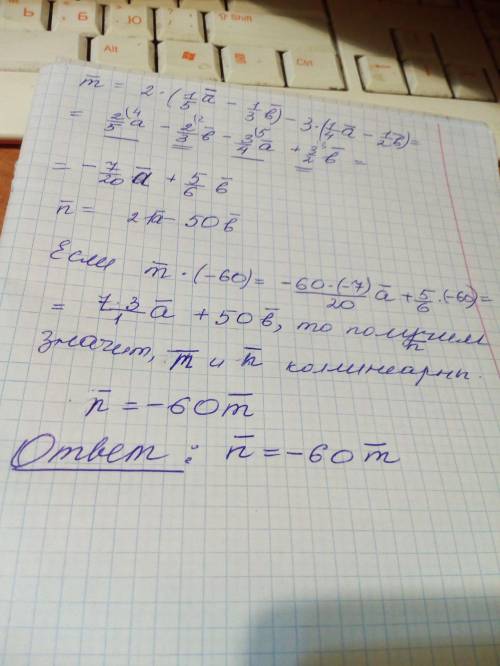 Ь Б Ю , . Shift
Alt Ctrl
m̅ = 2·(1/5 a̅ - 1/3 b̅) - 3·(1/4 a̅ - 1/2 b̅) =
= 2/5 (4 a̅ - 2/3 (2 b̅ - 3/4 (5 a̅ + 3/2 b̅ =
= - 7/20 a̅ + 5/6 b̅
n̅ = 21a̅ - 50b̅
Если m̅ · (-60) = -60·(-7)/20 a̅ + 5/6 · (-60) =
= 7·3/1 a̅ + 50b̅, то получим n̅
Значит, m̅ и n̅ коллинеарны.
n̅ = -60m̅
Ответ: n̅ = -60m̅